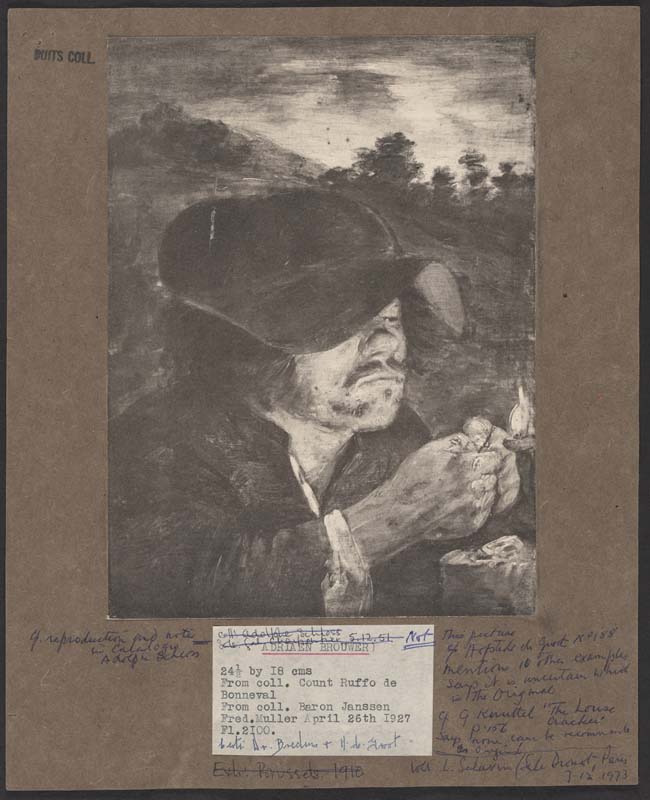 DUITS COLL.
cf. reproduction and note
in Catalogue
Adolphe Schloss
coll Adolphe Schloss
Sale Gal. Charpentier 5.12.51
Not
ADRIAEN BROUWER)
24½ by 18 cms
From coll. Count Ruffo de
Bonneval
From coll. Baron Janssen
Fred.Muller April 26th 1927
Fl.2100.
Certi Dr. Bredius + H. de Groot
Exh: Brussels 1910
This picture
cf Hofstede de Groot No 188
mentions 10 other examples
says it is uncertain which
is the Original
cf G Knuttel 'The Louse
Cracker'
says none can be
as Original
Coll. L. (Sale Drouot, Paris
7-12 1973